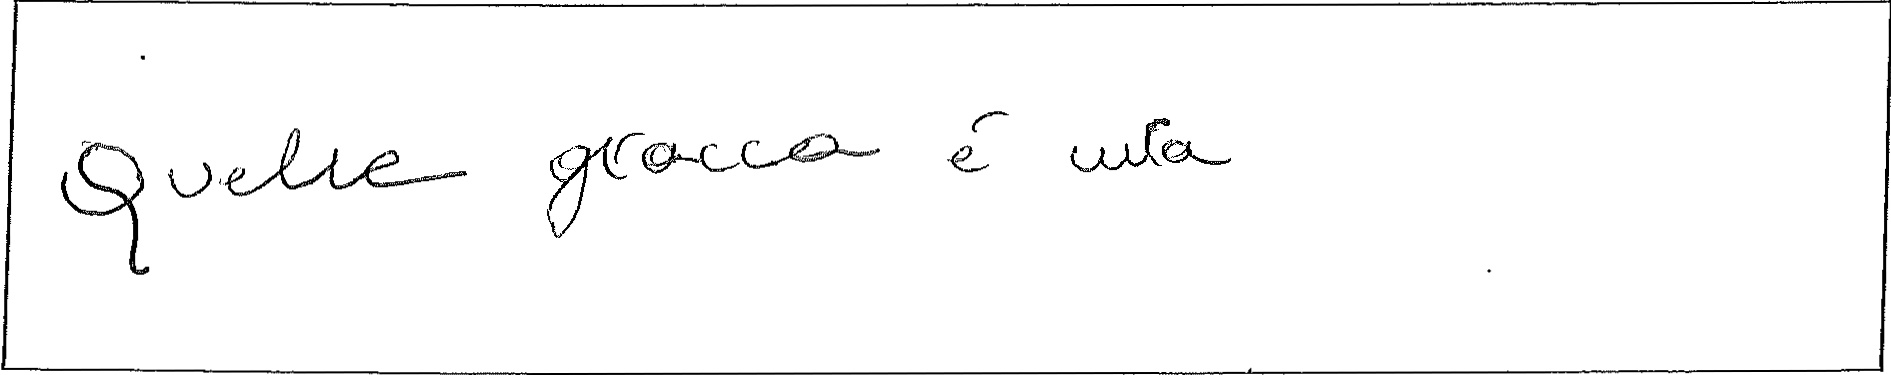 Quelle giacca é mia